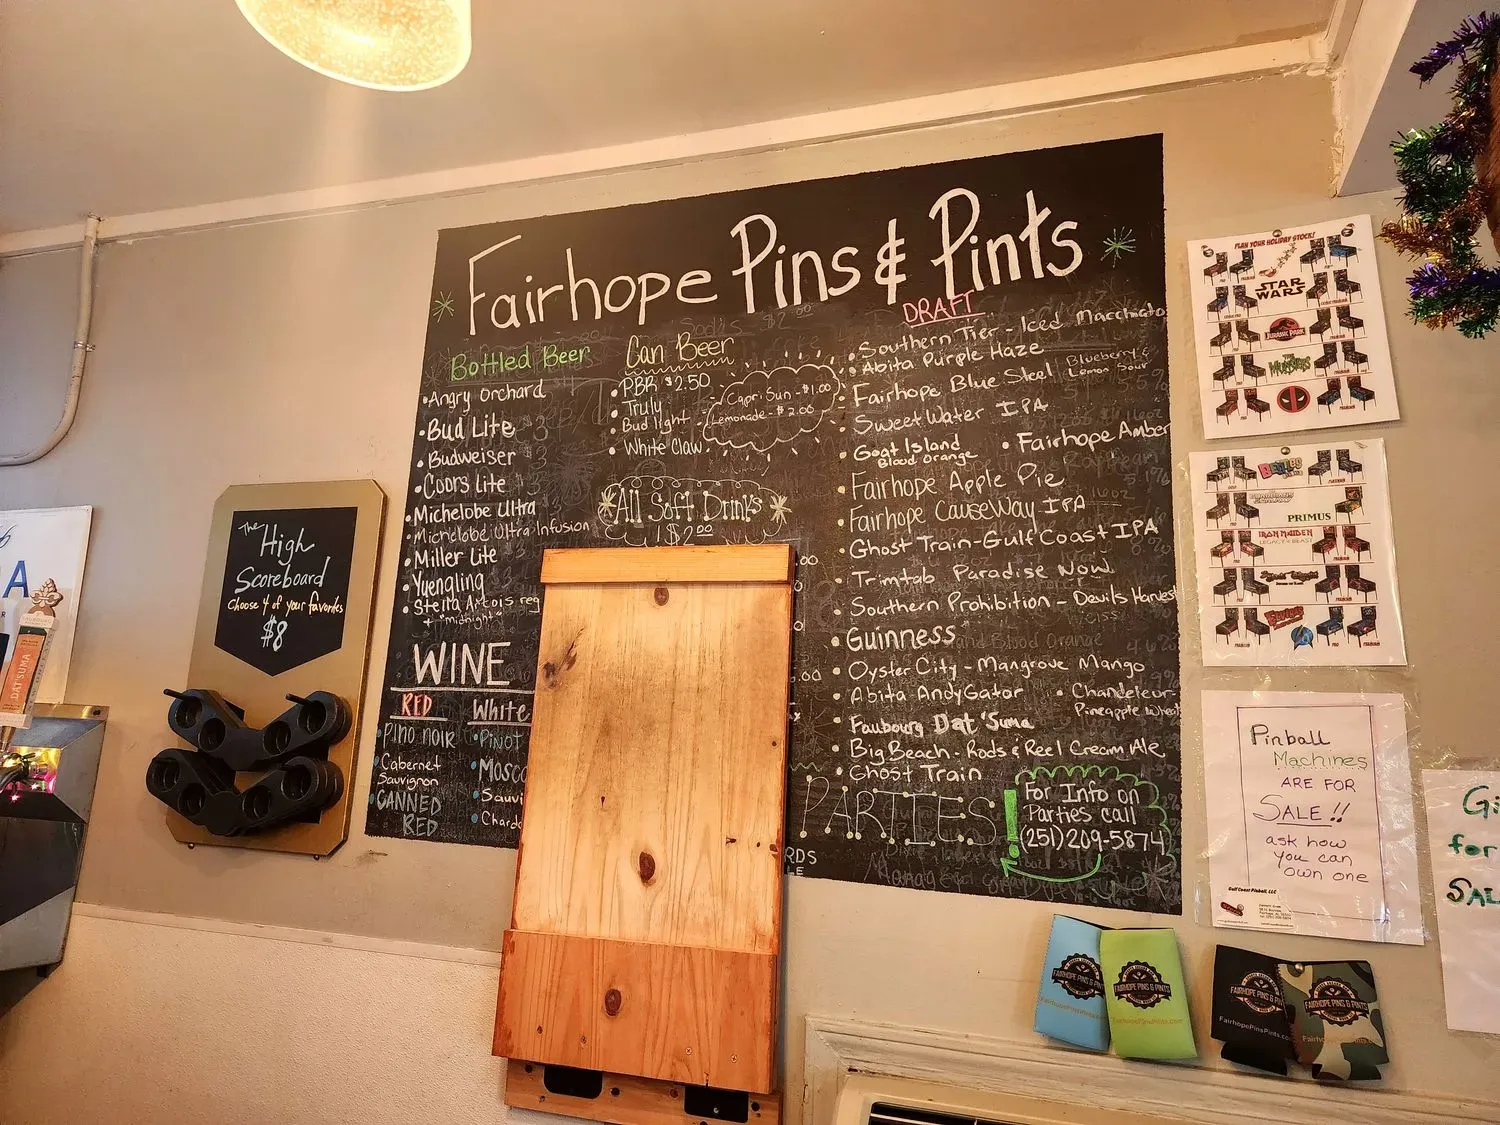 Fairhope Pins & Pints
Bottled Beer
• Angry Orchard
• Bud Lite
• Budweiser
• Coors Lite
• Michelobe Ultra
• Michelobe Ultra Infusion
• Miller Lite
• Yuengling
• Stella Artois reg
+ "midnight"
WINE
RED
• Pino noir
• Cabernet
Sauvignon
• CANNED
RED
White
• Pinot
• Mosc
• Sauvi
• Chard
Can Beer
• PBR $2.50
• Truly
• Bud light
• White Claw
- Capri Sun - $1.00
Lemonade - $2.00
All Soft Drinks
$2.00
DRAFT
• Southern Tier - Iced Macchiato
• Abita Purple Haze
• Fairhope Blue Steel Blueberry &
Lemon Sour
• Sweet Water IPA
• Goat Island
Blood Orange
• Fairhope Amber
• Fairhope Apple Pie
• Fairhope CauseWay IPA
• Ghost Train-Gulf Coast IPA
• Trimtab Paradise Now
• Southern Prohibition - Devils Harvest
• Guinness
• Oyster City - Mangrove Mango
• Abita AndyGator
• Chandeleur-
Pineapple Wheat
• Faubourg Dat 'Suma
• Big Beach - Rods & Reel Cream Ale
• Ghost Train
PARTIES!
For Info on
Parties call
(251)209-5874
RDS
LE
The
High
Scoreboard
Choose 4 of your favorites
$8
A
DAT'SUMA
PLAN YOUR HOLIDAY STOCK!
STAR
WARS
JURASSIC PARK
THE
MUNSTERS
PRIMUS
IRON MAIDEN
LEGACY OF THE BEAST
Pinball
Machines
ARE FOR
SALE!!
ask how
you can
own one
Gulf Coast Pinball, LLC
Gi
for
SAL
FAIRHOPE PINS &
FairhopePins
FAIRHOPE PINS & PINTS
FairhopePinsPints.com
FAIRHOPE PINS &
FairhopePinsPints.co
FAIRHOPE PINS & PINTS